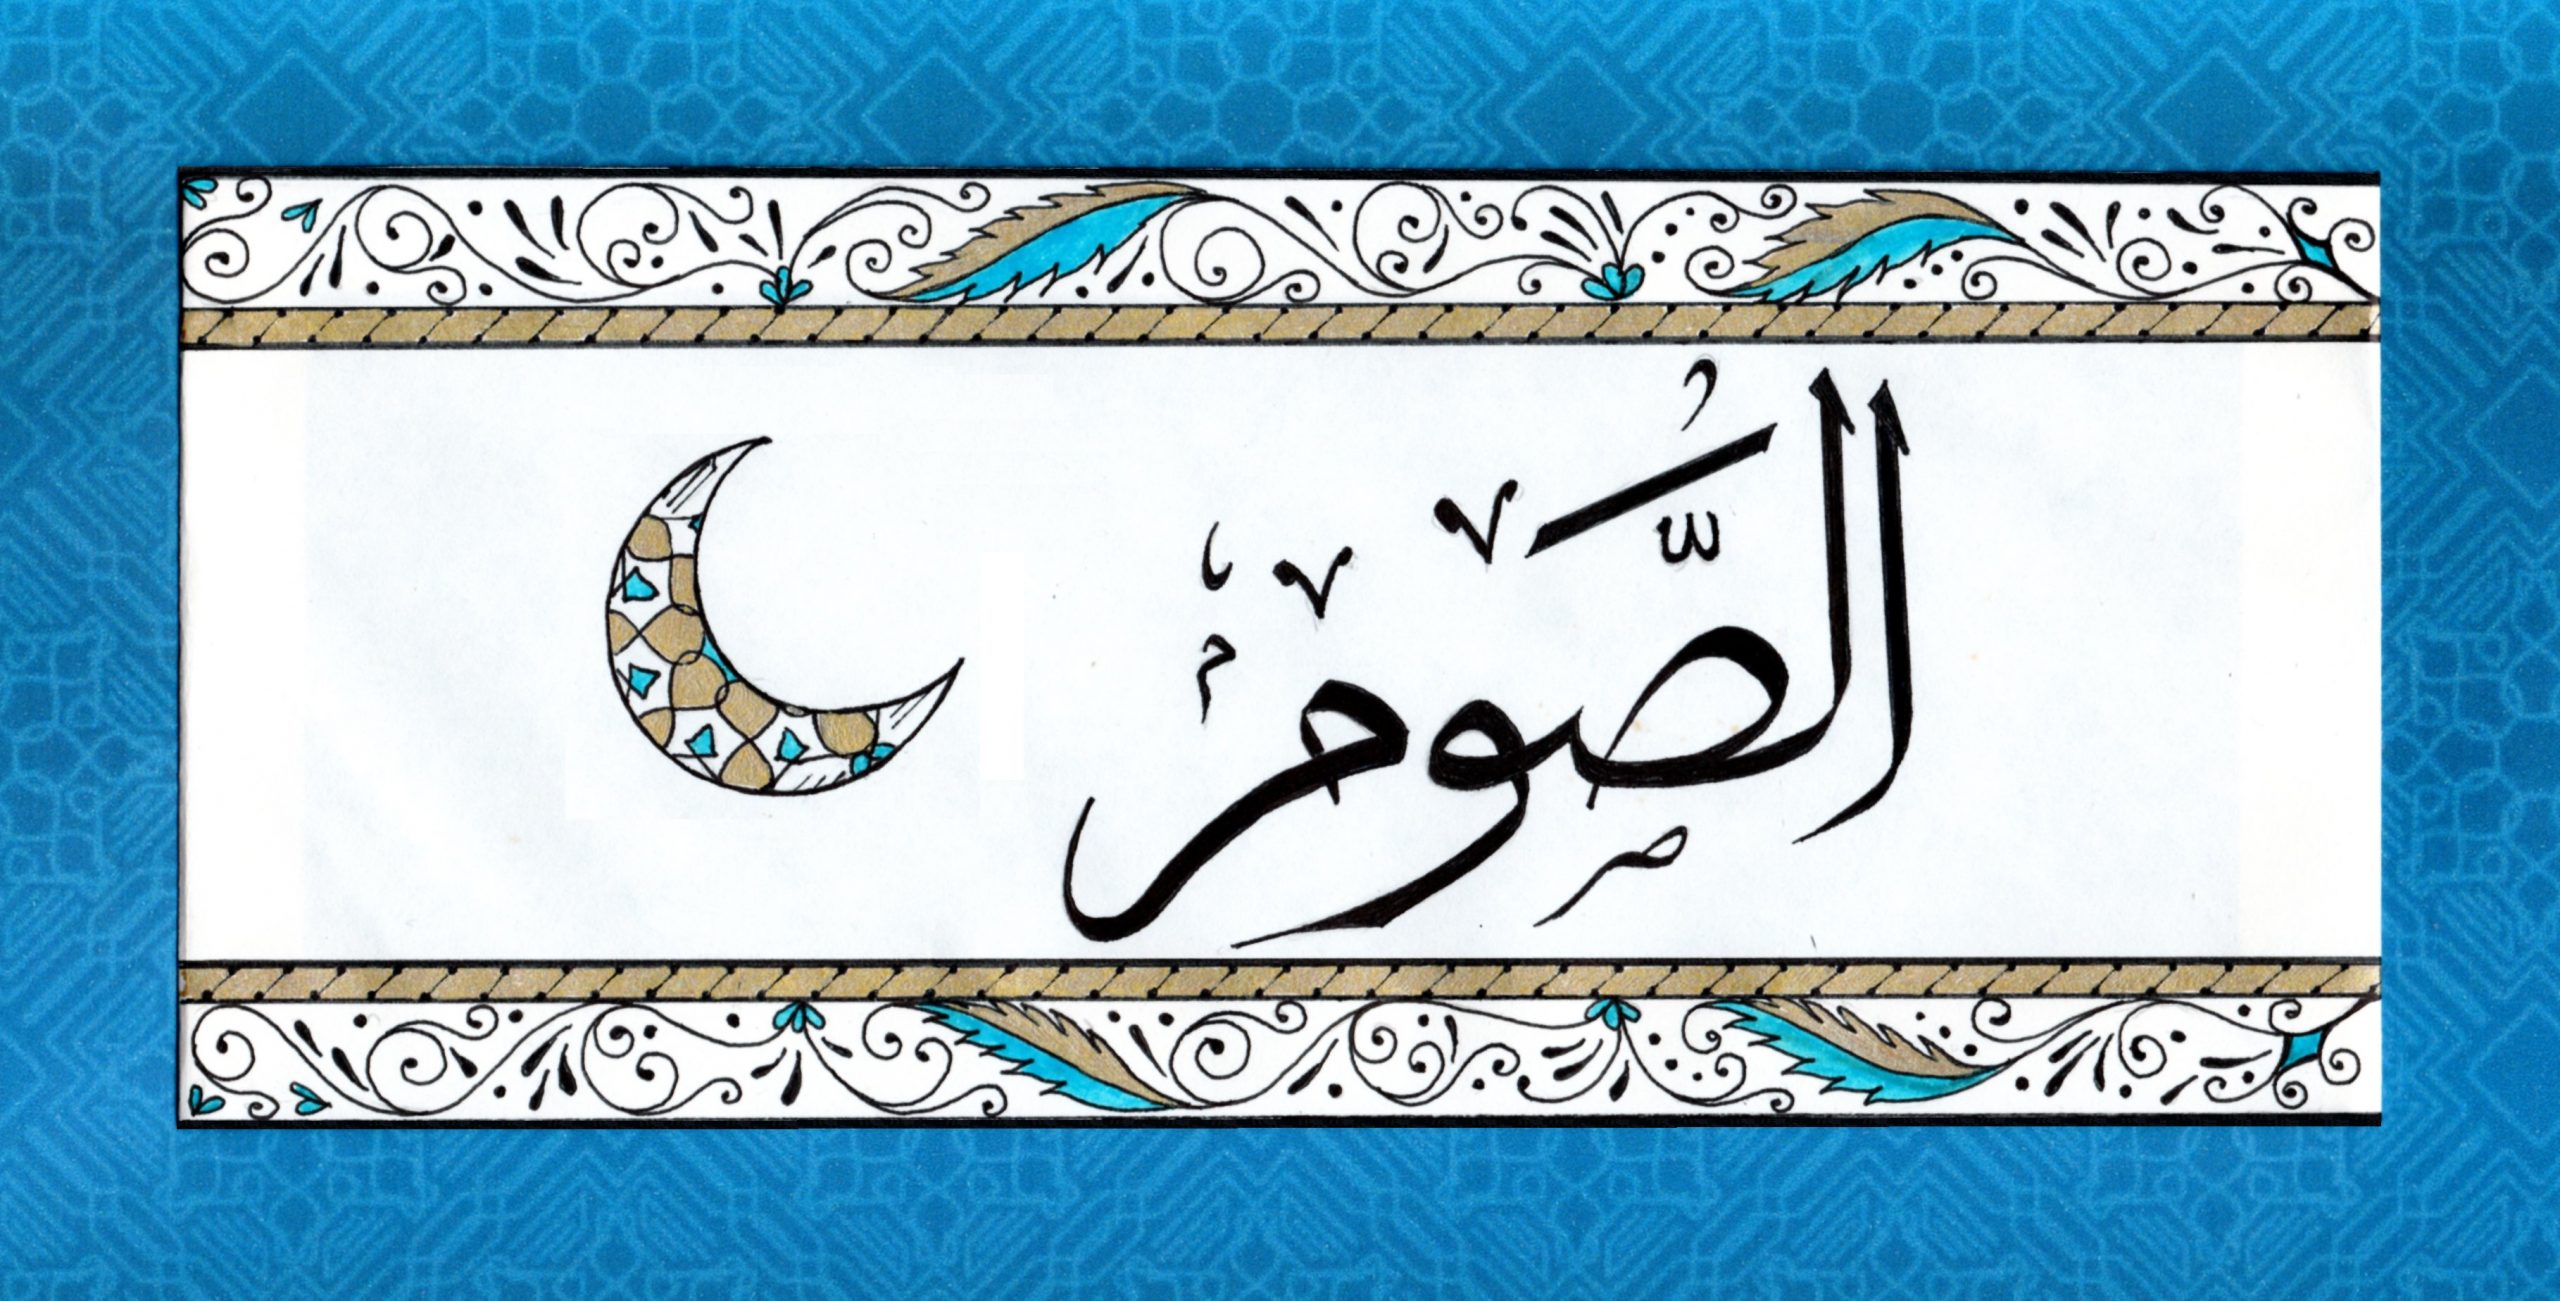 الصَّوم